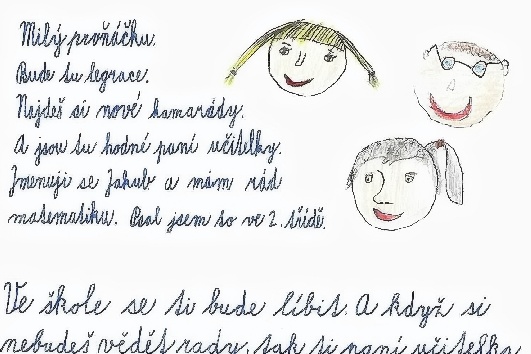 Milý prvňáčku.
Bude tu legrace.
Najdeš si nové kamarády.
A jsou tu hodné paní učitelky.
Jmenuji se Jakub a mám rád
matematiku. Psal jsem to ve 2. třídě.
Ve škole se ti bude líbit. A když si
nebudeš vědět rady, tak ti paní učitelka